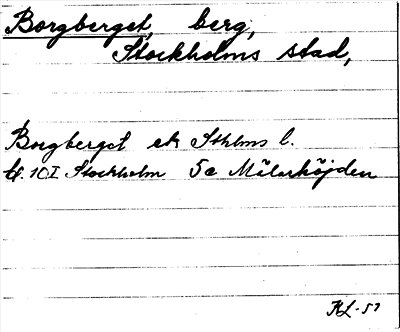 Borgberget, berg,
Stockholms stad,
Borgberget ek Sthlms l.
bl. 10 I Stockholm 5c Mälarhöjden
KL-57